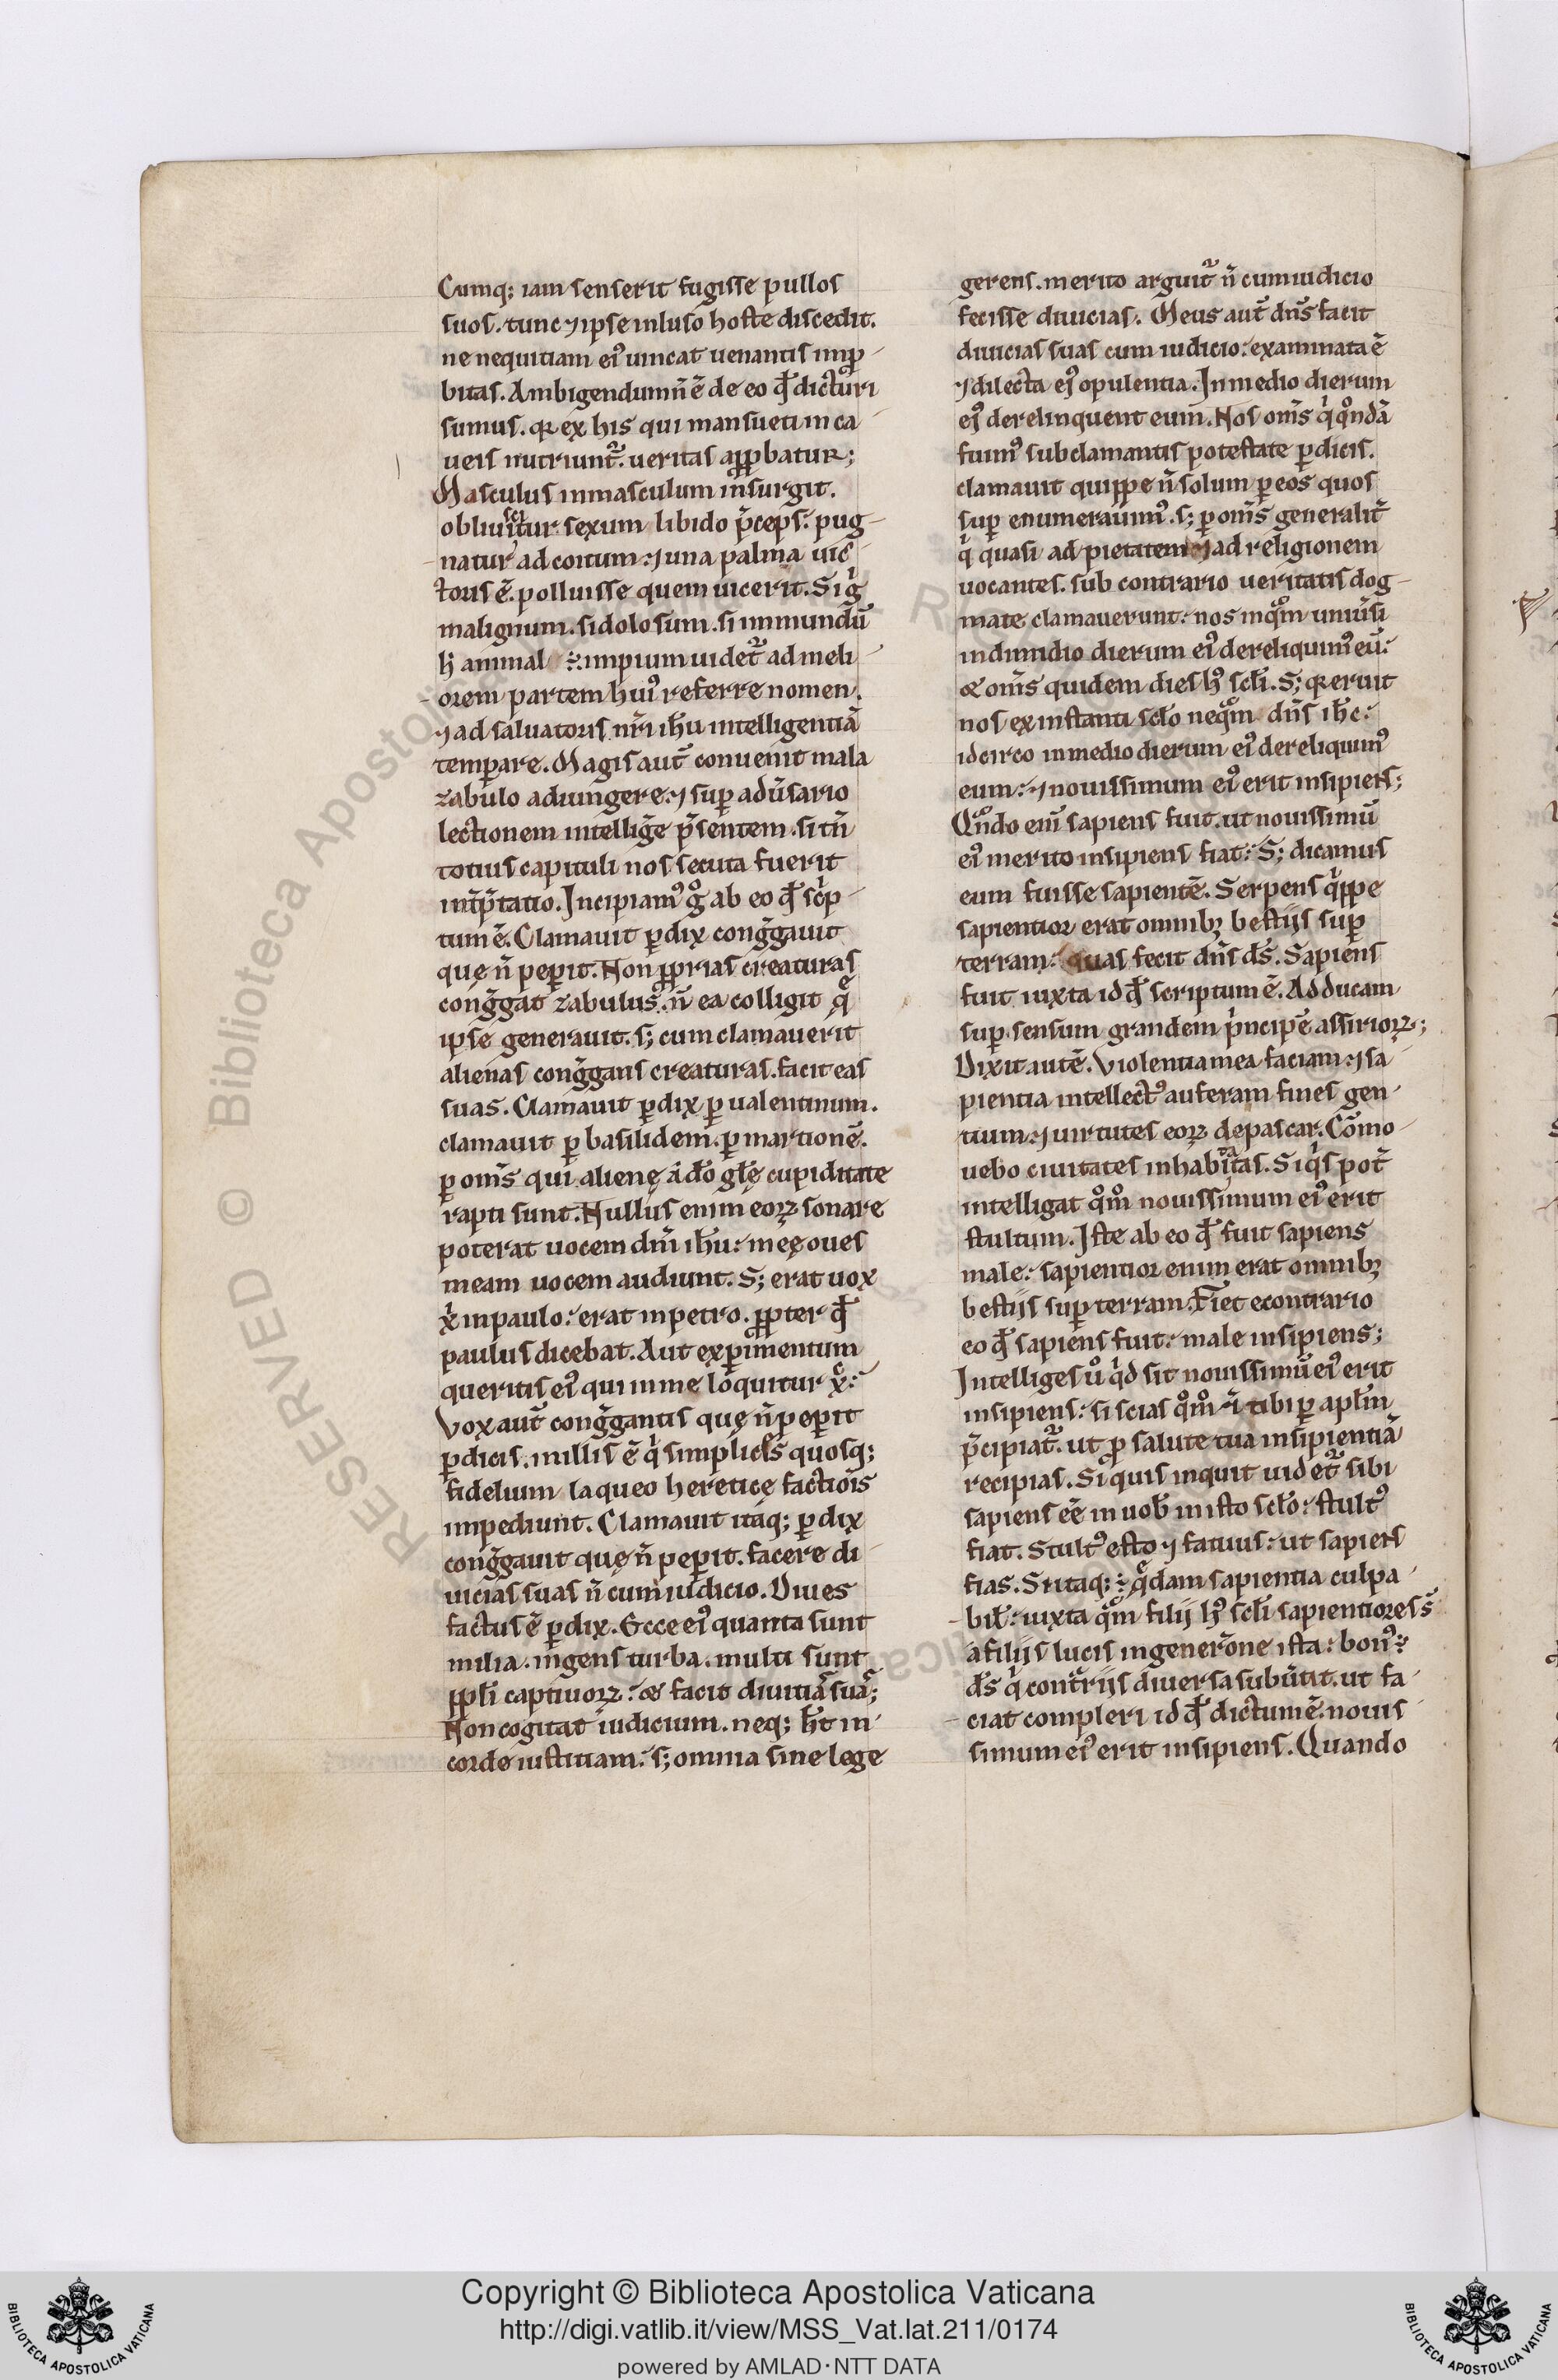 Cumq; iam senserit fugisse pullos
suos. tunc ⁊ ipse inluso hoste discedit.
ne nequitiam ei᷒ uincat uenantis imꝓ-
bitas. Ambigendum ñ ē de eo qd̄ dicturi
sumus. qꝛ ex his qui mansueti in ca-
ueis nutriunt᷑. ueritas aꝓbatur;
Masculus in masculum insurgit.
obliuiscitur sexum libido p̄ceps. pug-
natur ad coitum. ⁊ una palma uic-
toris ē. polluisse quem uicerit. Sigͥ
malignum. si dolosum. si inmundū
h̄ animal ÷. impium uidet᷑ ad meli-
orem partem hui᷒ referre nomen.
⁊ ad saluatoris nr̄i ih̄u intelligentiā
temꝑare. Magis aut̄ conuenit mala
zabulo adiungere. ⁊ suꝑ adūsario
lectionem intellig̃e p̄sentem. si tn̄
totius capituli nos secuta fuerit
int̃p̃tatio. Incipiam᷒ gͦ ab eo qd̄ scͥp-
tum ē. Clamauit ꝑdix cong̃gauit
quę ñ peꝑit. Non ꝓprias creaturas
cong̃gat zabulus. ñ ea colligit q̄
ipse generauit. s; cum clamauerit
alienas cong̃gans creaturas. facit eas
suas. Clamauit ꝑdix ꝑ ualentinum.
clamauit ꝑ basilidem. ꝑ martionē.
ꝑ om̄s qui alienę a dō glę cupiditate
rapti sunt. Nullus enim eoꝝ sonare
poterat uocem dn̄i ih̄u. meę oues
meam uocem audiunt. S; erat uox
xͥ in paulo. erat in petro. ꝓpter qd̄
paulus dicebat. Aut exꝑimentum
queritis ei᷒ qui in me loquitur xͨ.
Vox aut̄ cong̃gantis quę ñ peꝑit
ꝑdicis. in illis ē qͥ simplices quosq;
fidelium laqueo heretice factiōis
impediunt. Clamauit itaq; ꝑdix
cong̃gauit quę ñ peꝑit. facere di-
uicias suas ñ cum iudicio. Diues
factus ē ꝑdix. Ecce ei᷒ quanta sunt
milia. ingens turba. multi sunt
ppl̄i captiuoꝝ. & facit diuitiā suā;
Non cogitat iudicium. neq; h̄t in
corde iustitiam. s; omnia sine lege
gerens. merito arguit᷑ ñ cum iudicio
fecisse diuicias. Meus aut̄ dn̄s facit
diuicias suas cum iudicio. examinata ē
⁊ dilecta ei᷒ opulentia. In medio dierum
ei᷒ derelinquent eum. Nos om̄s qͥ qͦndā
fuim᷒ sub clamantis potestate ꝑdicis.
clamauit quippe ñ solum ꝑ eos quos
suꝑ enumerauim᷒. s; ꝑ om̄s generalit̃
qͥ quasi ad pietatem ⁊ ad religionem
uocantes. sub contrario ueritatis dog-
mate clamauerunt. nos inqͦm uniūsi
in dimidio dierum ei᷒ dereliquim᷒ eū.
& om̄s quidem dies h᷒ scl̄i. S; qꝛ eruit
nos ex instanti scl̄o neqͦm dn̄s ih̄c.
idcirco in medio dierum ei᷒ dereliquim᷒
eum. ⁊ nouissimum ei᷒ erit insipiens;
Qͦndo eni̅ sapiens fuit. ut nouissimū
ei᷒ merito insipiens fiat. S; dicamus
eum fuisse sapientē. Serpens qͥppe
sapientior erat omnibꝫ bestiis suꝑ
terram. quas fecit dn̄s ds̄. Sapiens
fuit iuxta id qd̄ scriptum ē. Adducam
suꝑ sensum grandem pͥncipē assirioꝝ;
Dixit autē. Violentia mea faciam. ⁊ sa-
pientia intellect᷒ auferam fines gen-
tium. ⁊ uirtutes eoꝝ depascar. Cōmo-
uebo ciuitates inhabitatas. Si qͥs pot̃
intelligat qͦmͦ nouissimum ei᷒ erit
stultum. Iste ab eo qd̄ fuit sapiens
male. sapientior enim erat omnibꝫ
bestiis suꝑ terram. Fiet econtrario
eo qd̄ sapiens fuit. male insipiens;
Intelliges uͦ qͥd sit nouissimū ei᷒ erit
insipiens. si scias qͦmͦ ⁊ tibi ꝑ apl̄m
p̄cipiat᷑. ut ꝓ salute tua insipientiā
recipias. Si quis inquit uidet᷑ sibi
sapiens eē in uob̄ in isto scl̄o. stult᷒
fiat. Stult᷒ esto ⁊ fatuus. ut sapiens
fias. Si itaq; ÷ q̄dam sapientia culpa-
bil̄. iuxta qͦm filij h᷒ scl̄i sapientiores s̄
a filijs lucis in generōne ista. bon᷒ ÷
ds̄ qͥ contrͣijs diuersa subūtit. ut fa-
ciat compleri id qd̄ dictum ē. nouis-
simum ei᷒ erit insipiens. Quando
RESERVED © Biblioteca Apostolica
Copyright © Biblioteca Apostolica Vaticana
http://digi.vatlib.it/view/MSS_Vat.lat.211/0174
powered by AMLAD·NTT DATA
BIBLIOTECA APOSTOLICA VATICANA
BIBLIOTECA APOSTOLICA VATICANA